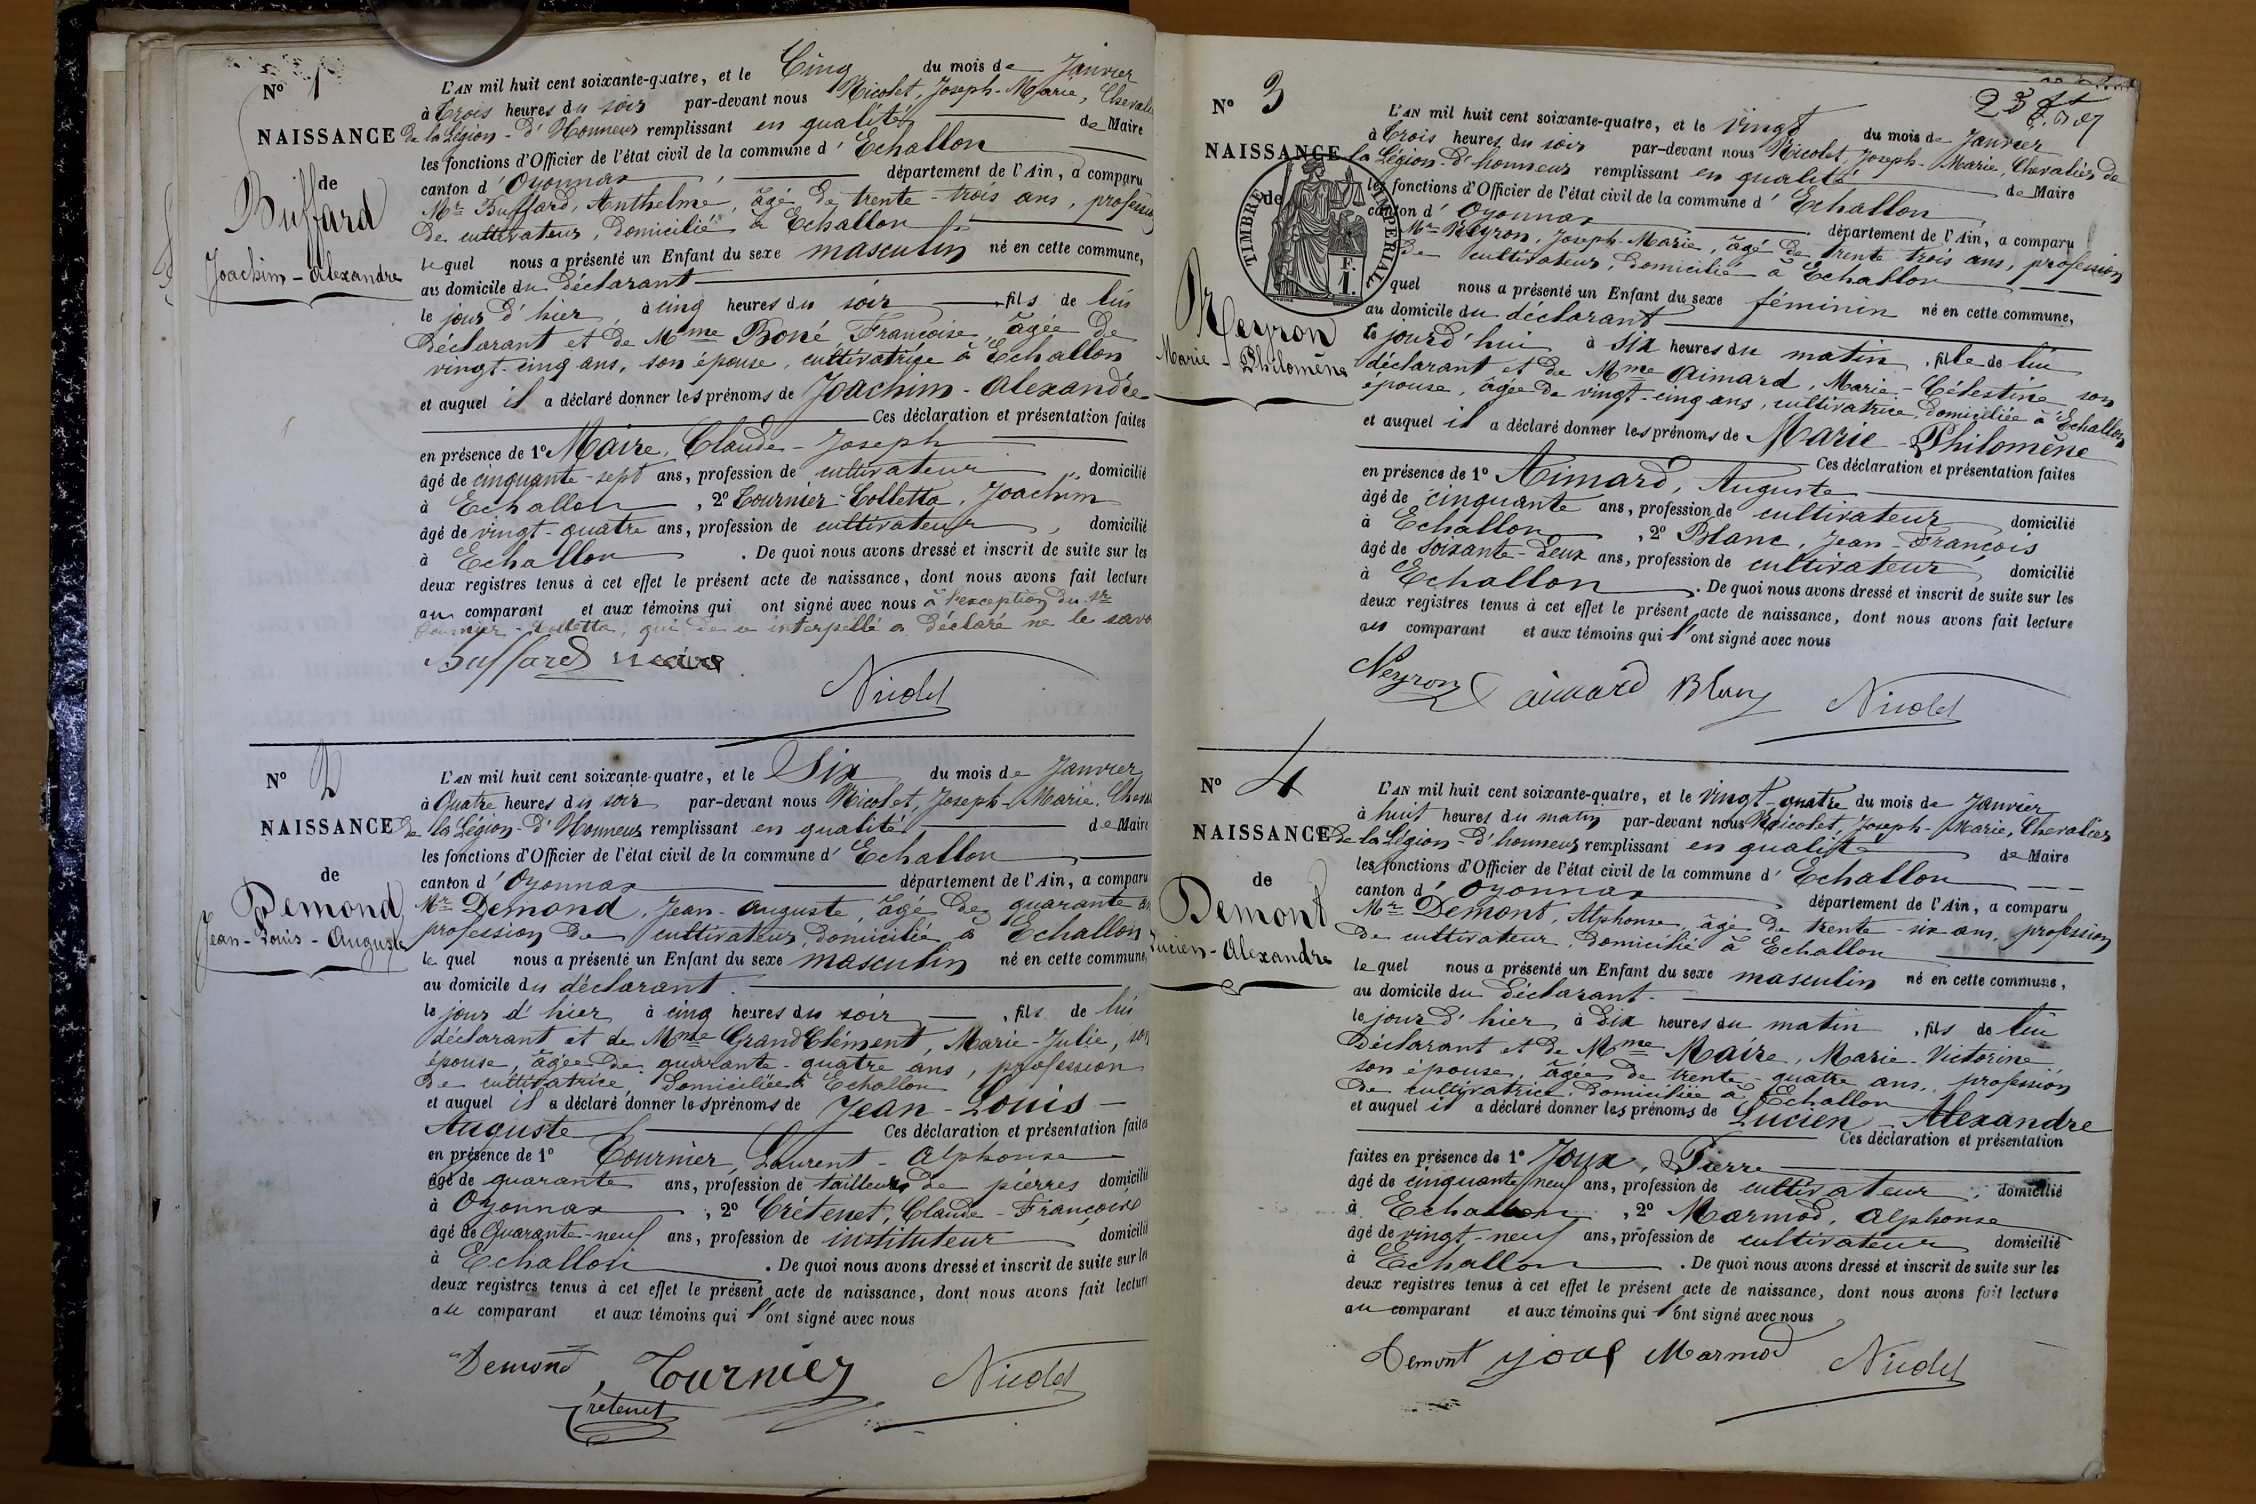 N° 1
NAISSANCE
de
Buffard
Joachim - Alexandre
L'AN mil huit cent soixante-quatre, et le Cinq du mois de Janvier
à trois heures du soir par-devant nous Nicolet, Joseph-Marie, Chevalier
de la Légion-d'Honneur remplissant en qualité de Maire
les fonctions d'Officier de l'état civil de la commune d'Echallon
canton d'Oyonnax département de l'Ain, a comparu
Mr Buffard, Anthelme, âgé de trente-trois ans, profession
de cultivateur, domicilié à Echallon
lequel nous a présenté un Enfant du sexe masculin né en cette commune,
au domicile du déclarant
le jour d'hier, à cinq heures du soir fils de lui
déclarant et de Mme Boné, Françoise, âgée de
vingt-cinq ans, son épouse, cultivatrice à Echallon
et auquel il a déclaré donner les prénoms de Joachim-Alexandre
Ces déclaration et présentation faites
en présence de 1° Maire, Claude-Joseph
âgé de cinquante-sept ans, profession de cultivateur, domicilié
à Echallon, 2° Tournier-Colletta, Joachim
âgé de vingt-quatre ans, profession de cultivateur, domicilié
à Echallon. De quoi nous avons dressé et inscrit de suite sur les
deux registres tenus à cet effet le présent acte de naissance, dont nous avons fait lecture
au comparant et aux témoins qui ont signé avec nous à l'exception du Sr
Tournier-Colletta, qui de ce interpellé a déclaré ne le savoir
Buffard maire
Nicolet
N° 2
NAISSANCE
de
Demond
Jean-Louis-Auguste
L'AN mil huit cent soixante-quatre, et le Six du mois de Janvier
à Quatre heures du soir par-devant nous Nicolet, Joseph-Marie, Cheva
de la Légion-d'Honneur remplissant en qualité de Maire
les fonctions d'Officier de l'état civil de la commune d'Echallon
canton d'Oyonnax département de l'Ain, a comparu
Mr Demond, Jean-Auguste, âgé de quarante ans
profession de cultivateur, domicilié à Echallon
lequel nous a présenté un Enfant du sexe masculin né en cette commune,
au domicile du déclarant.
le jour d'hier à cinq heures du soir, fils de lui
déclarant et de Mme GrandClément, Marie-Julie, son
épouse, âgée de quarante-quatre ans, profession
de cultivatrice, domiciliée à Echallon
et auquel il a déclaré donner les prénoms de Jean-Louis-
Auguste Ces déclaration et présentation faites
en présence de 1° Tournier, Laurent-Alphonse
âgé de quarante ans, profession de tailleur de pierres domicilié
à Oyonnax, 2° Crétenet, Claude-François
âgé de Quarante-neuf ans, profession de instituteur domicilié
à Echallon. De quoi nous avons dressé et inscrit de suite sur les
deux registres tenus à cet effet le présent acte de naissance, dont nous avons fait lecture
au comparant et aux témoins qui l'ont signé avec nous
Demond Tournier Nicolet
Crétenet
23
N° 3
NAISSANCE
de
TIMBRE IMPERIAL
F.
1.
Neyron
Marie-Philomène
L'AN mil huit cent soixante-quatre, et le vingt du mois de Janvier
à trois heures du soir par-devant nous Nicolet, Joseph-Marie, Chevalier de
la Légion-d'honneur remplissant en qualité de Maire
les fonctions d'Officier de l'état civil de la commune d'Echallon
canton d'Oyonnax département de l'Ain, a comparu
Mr Neyron, Joseph-Marie, âgé de trente-trois ans, profession
de cultivateur, domicilié à Echallon
lequel nous a présenté un Enfant du sexe féminin né en cette commune,
au domicile du déclarant
le jourd'hui à six heures du matin, fille de lui
déclarant et de Mme Aimard, Marie-Célestine son
épouse, âgée de vingt-cinq ans, cultivatrice, domiciliée à Echallon
et auquel il a déclaré donner les prénoms de Marie-Philomène
Ces déclaration et présentation faites
en présence de 1° Aimard, Auguste
âgé de cinquante ans, profession de cultivateur domicilié
à Echallon, 2° Blanc, Jean-François
âgé de soixante-deux ans, profession de cultivateur, domicilié
à Echallon. De quoi nous avons dressé et inscrit de suite sur les
deux registres tenus à cet effet le présent acte de naissance, dont nous avons fait lecture
au comparant et aux témoins qui l'ont signé avec nous
Neyron aimard Blanc Nicolet
N° 4
NAISSANCE
de
Demont
Lucien-Alexandre
L'AN mil huit cent soixante-quatre, et le vingt-quatre du mois de Janvier
à huit heures du matin par-devant nous Nicolet, Joseph-Marie, Chevalier
de la Légion-d'honneur remplissant en qualité de Maire
les fonctions d'Officier de l'état civil de la commune d'Echallon
canton d'Oyonnax département de l'Ain, a comparu
Mr Demont, Alphonse, âgé de trente-six ans, profession
de cultivateur, domicilié à Echallon
lequel nous a présenté un Enfant du sexe masculin né en cette commune,
au domicile du déclarant.
le jour d'hier à dix heures du matin, fils de lui
déclarant et de Mme Maire, Marie-Victorine
son épouse, âgée de trente-quatre ans, profession
de cultivatrice, domiciliée à Echallon
et auquel il a déclaré donner les prénoms de Lucien-Alexandre
Ces déclaration et présentation
faites en présence de 1° Joux, Pierre
âgé de cinquante neuf ans, profession de cultivateur, domicilié
à Echallon, 2° Marmod, Alphonse
âgé de vingt-neuf ans, profession de cultivateur domicilié
à Echallon. De quoi nous avons dressé et inscrit de suite sur les
deux registres tenus à cet effet le présent acte de naissance, dont nous avons fait lecture
au comparant et aux témoins qui l'ont signé avec nous
Demont joux Marmod Nicolet